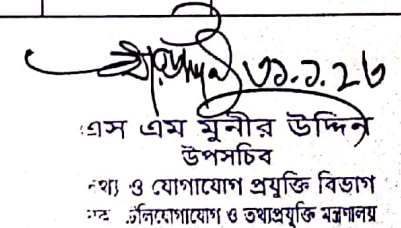 ৩১.১.২৩
এস এম মুনীর উদ্দিন
উপসচিব
তথ্য ও যোগাযোগ প্রযুক্তি বিভাগ
টেলিযোগাযোগ ও তথ্যপ্রযুক্তি মন্ত্রণালয়